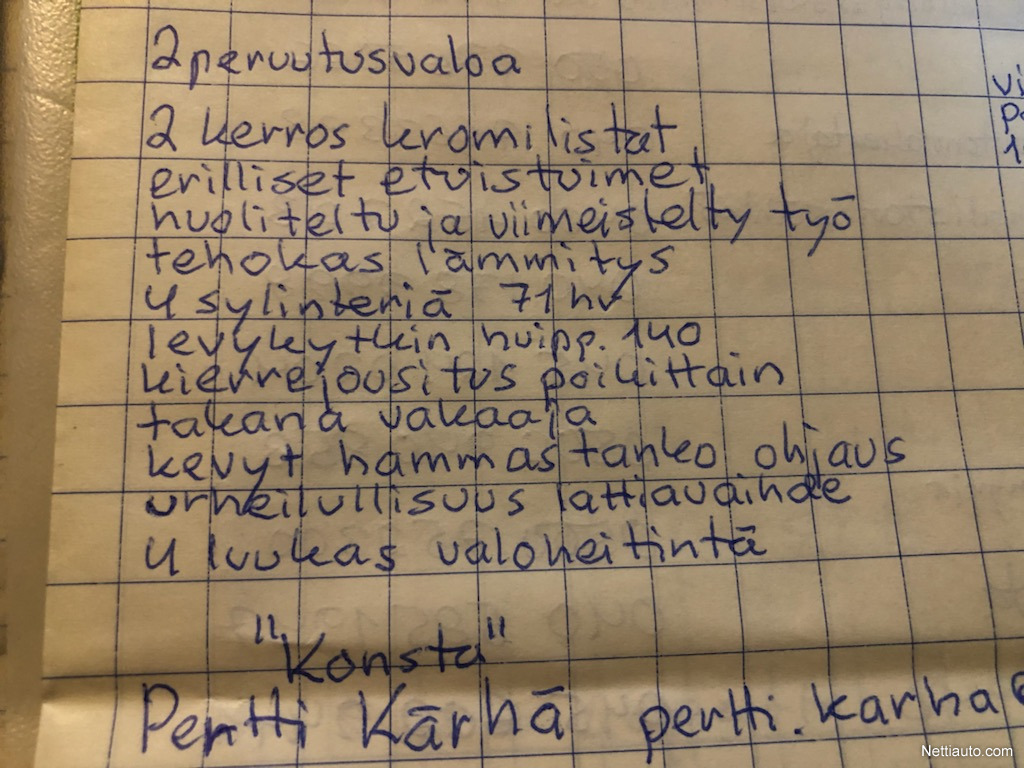 2 peruutusvaloa
2 kerros kromilistat
erilliset etuistuimet
huoliteltu ja viimeistelty työ
tehokas lämmitys
4 sylinteriä 71 hv
levykytkin huipp. 140
kierrejousitus poikittain
takana vakaaja
kevyt hammastanko ohjaus
urheilullisuus lattiavaihde
4 luukas valoheitintä
"Konsta"
Pertti Kärhä pertti.karha@
vi
po
1
Nettiauto.com